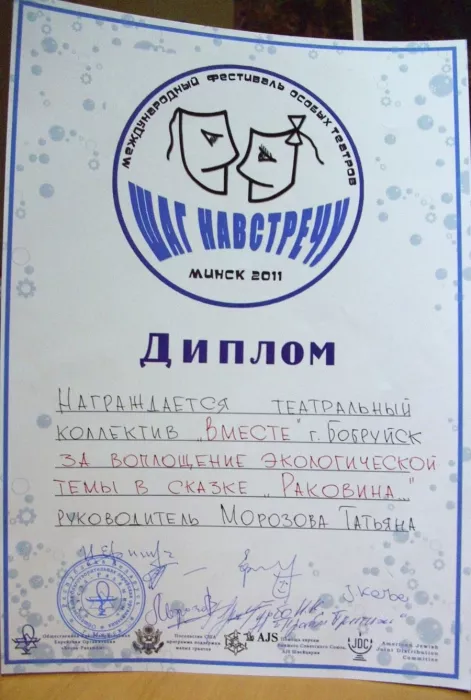 МЕЖДУНАРОДНЫЙ ФЕСТИВАЛЬ ОСОБЫХ ТЕАТРОВ
ШАГ НАВСТРЕЧУ
МИНСК 2011
Диплом
НАГРАЖДАЕТСЯ ТЕАТРАЛЬНЫЙ
КОЛЛЕКТИВ „ВМЕСТЕ" г. БОБРУЙСК
ЗА ВОПЛОЩЕНИЕ ЭКОЛОГИЧЕСКОЙ
ТЕМЫ В СКАЗКЕ „РАКОВИНА..."
РУКОВОДИТЕЛЬ МОРОЗОВА ТАТЬЯНА
Посольство США
программа поддержки
малых грантов
AJS
JDC
American Jewish
Joint Distribution
Committee